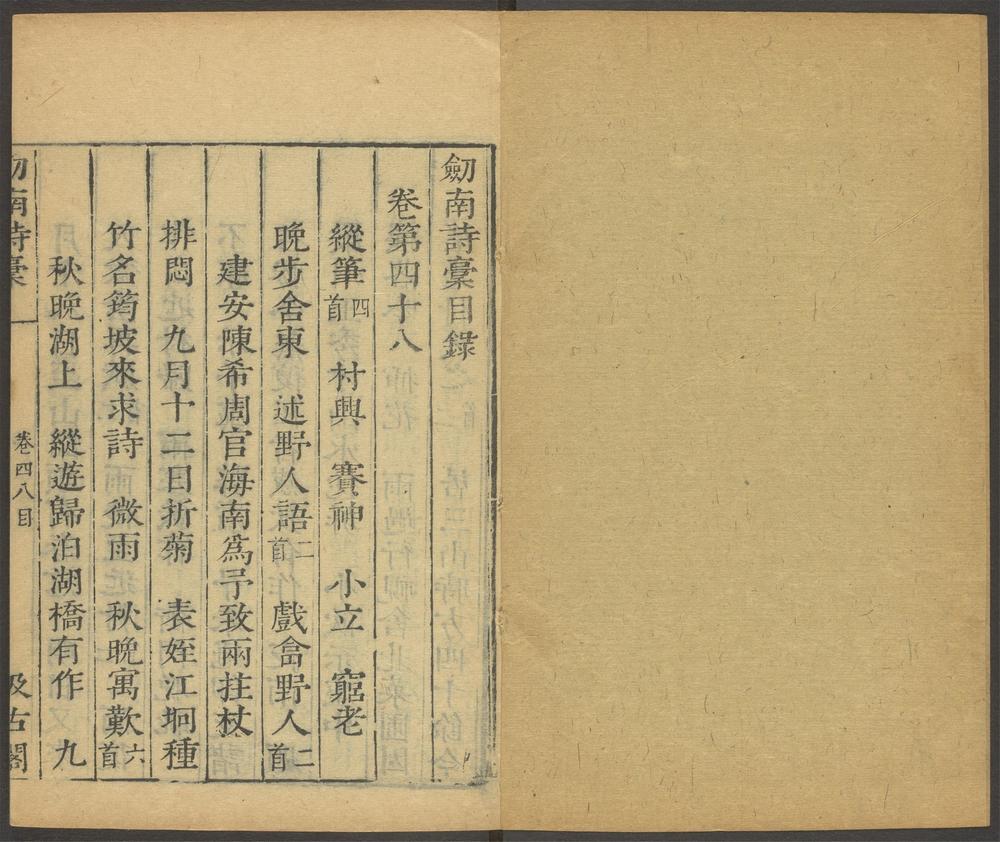 劒南詩稾目錄
卷第四十八
縱筆四首 村興 賽神 小立 窮老
晚步舍東 述野人語二首 戲畣野人二首
建安陳希周官海南爲予致兩拄杖
排悶 九月十二日折菊 表姪江坰種
竹名筠坡來求詩 微雨 秋晚寓歎六首
秋晚湖上 縱遊歸泊湖橋有作 九
劒南詩稾 卷四八目 汲古閣